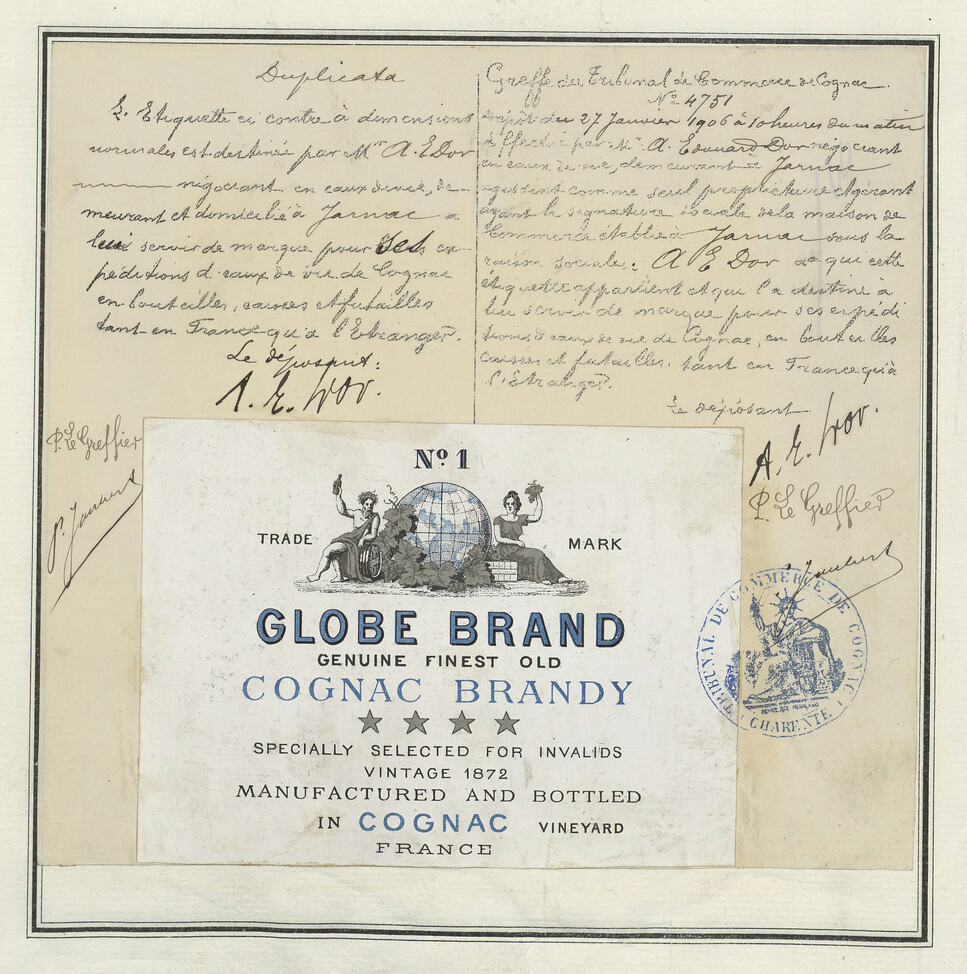 Duplicata
L'Etiquette ci contre à dimensions
normales est destinée par Mr A. E Dor
négociant en eaux de vie, de-
meurant et domicilié à Jarnac a
lui servir de marque pour ses ex-
péditions d'eaux de vie de Cognac
en bouteilles, caisses et futailles
tant en France qu'à l'Etranger.
Le déposant:
A. E. Dor.
P. Le Greffier
P. Jaubert
Greffe du Tribunal de Commerce de Cognac.
No 4751
Dépôt du 27 Janvier 1906 à 10 heures du matin
Effectué par Mr A. Edouard Dor négociant
en eaux de vie, demeurant à Jarnac
agissant comme seul propriétaire et gérant
ayant la signature sociale de la maison de
Commerce établie à Jarnac sous la
raison sociale: A E Dor à qui cette
étiquette appartient et qui l'a destiné a
lui servir de marque pour ses expédi
tions d'eaux de vie de Cognac, en bouteilles
caisses et futailles, tant en France qu'à
l'Etranger.
Le déposant
A. E. Dor.
P. Le Greffier
Jaubert
TRIBUNAL DE COMMERCE DE COGNAC
CHARENTE
No 1
TRADE MARK
GLOBE BRAND
GENUINE FINEST OLD
COGNAC BRANDY
SPECIALLY SELECTED FOR INVALIDS
VINTAGE 1872
MANUFACTURED AND BOTTLED
IN COGNAC VINEYARD
FRANCE